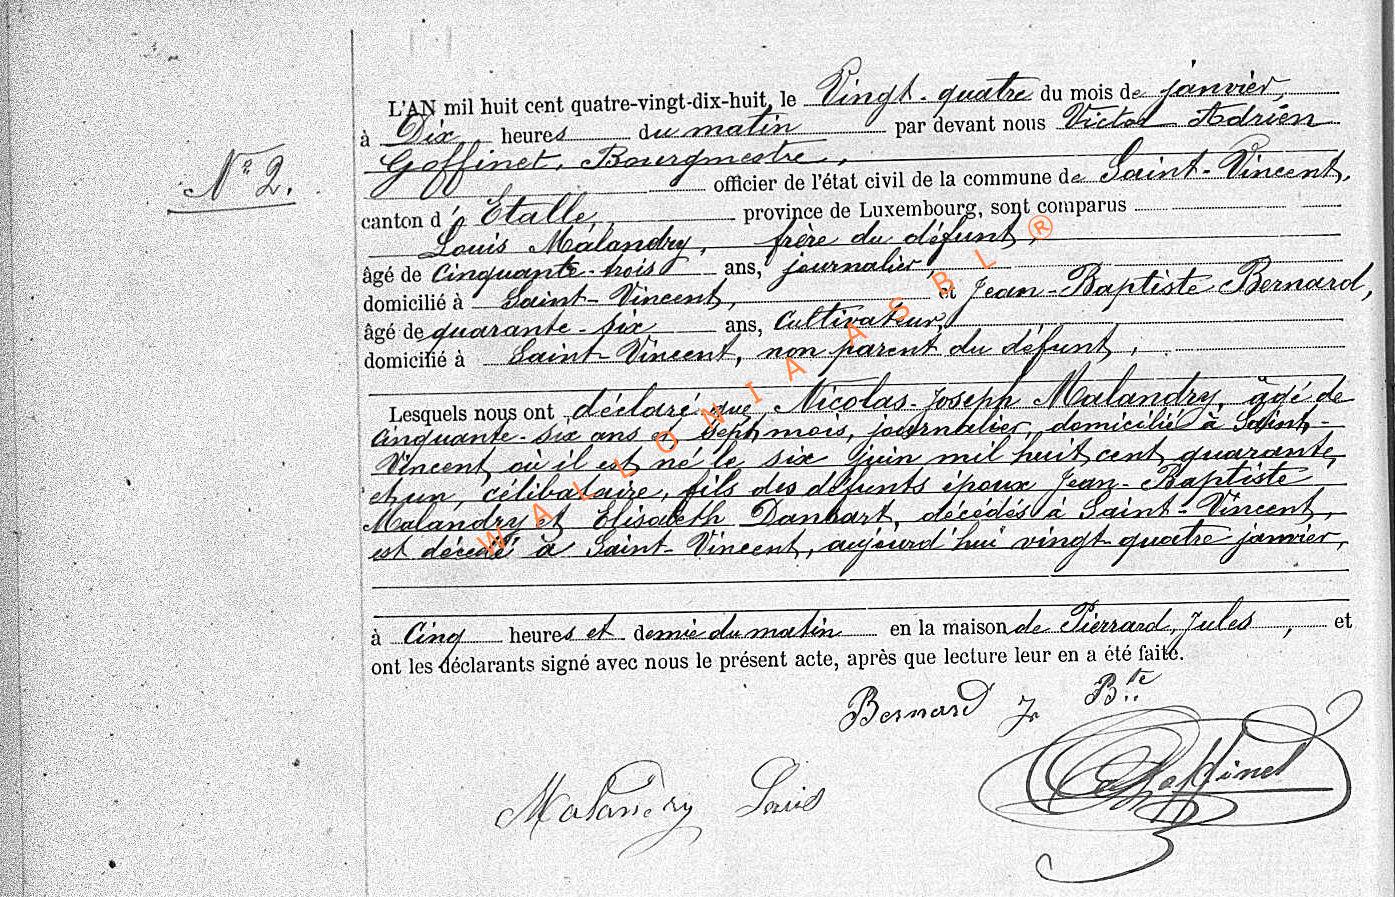 L'AN mil huit cent quatre-vingt-dix-huit, le Vingt-quatre du mois de janvier,
à Dix heures du matin par devant nous Victor Adrien
Goffinet, Bourgmestre,
N° 2.
officier de l'état civil de la commune de Saint-Vincent,
canton d'Etalle, province de Luxembourg, sont comparus
Louis Malandry, frère du défunt,
âgé de cinquante-trois ans, journalier,
domicilié à Saint-Vincent, et Jean-Baptiste Bernard,
âgé de quarante-six ans, cultivateur,
domicilié à Saint-Vincent, non parent du défunt,
Lesquels nous ont déclaré que Nicolas-Joseph Malandry, âgé de
cinquante-six ans et sept mois, journalier, domicilié à Saint-
Vincent, où il est né le six juin mil huit cent quarante
et un, célibataire, fils des défunts époux Jean-Baptiste
Malandry et Elisabeth Danhart, décédés à Saint-Vincent,
est décédé à Saint-Vincent, aujourd'hui vingt-quatre janvier,
à cinq heures et demie du matin en la maison de Pierrard, Jules, et
ont les déclarants signé avec nous le présent acte, après que lecture leur en a été faite.
Bernard J Bte
Goffinet
Malandry Louis
WALLONIA ASBL ®